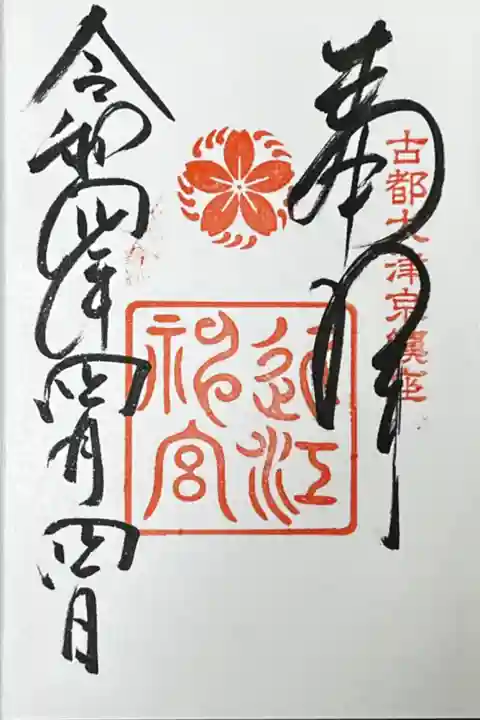 古都大津京鎮座
奉拝
近江神宮
令和四年四月四日